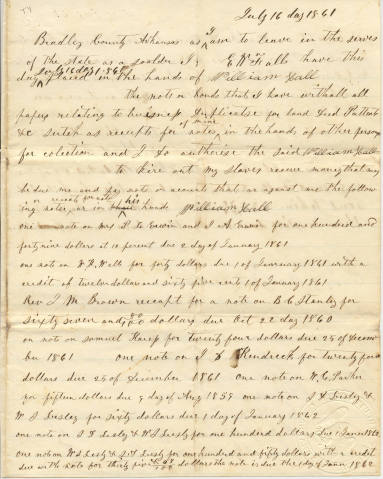 July 16 day 1861
Bradley County Arkansas as I am to leave in the serves
of the state as a soulder I E W Falls have this
day July 16 day 1861 placed in the hands of William Hall
the nots on hands that I have withall all
papers relating to buisness Duplicates for land Deed Pattent
&c sutch as receipts for notes of mine in the hands of other persons
for colection and I do autherise the said William Hall
to hire out my slaves receve money that may
be due me and pay nots or acounts that as against me the follow
ing notes or receipt for nots are in his hands William Hall
one note on Mrs P L Erwin and J A Erwin for one hundred and
forty nine dollars at 10 percent due 2 day of January 1861
one note on W. H. Wells for forty dollars due 1 of January 1861 with a
credit of twelve dollars and sixty five cents 1 of January 1861
Rev J M Brown receipt for a note on B C Stanley for
sixty seven and 80/100 dollars due Oct 22 day 1860
on not on samuel for twenty four dollars due 25 of Decem
ber 1861 one note on J Kendreck for twenty four
dollars due 25 of December 1861 one note on W. C. Parker
for fifteen dollars due 9 day of Aug 1859 one note on J H Lesley &
W J Lesley for sixty dollars due 1 day of January 1862
one note on J H Lesley & W J Lesly for one hundred dollars due 1 Janu 1862
one note on W J Lesly & J H Lesly for one hundred and fifty dollars with a credit
due with note for thirty five dollars the note is due the 1 day of Janu 1862